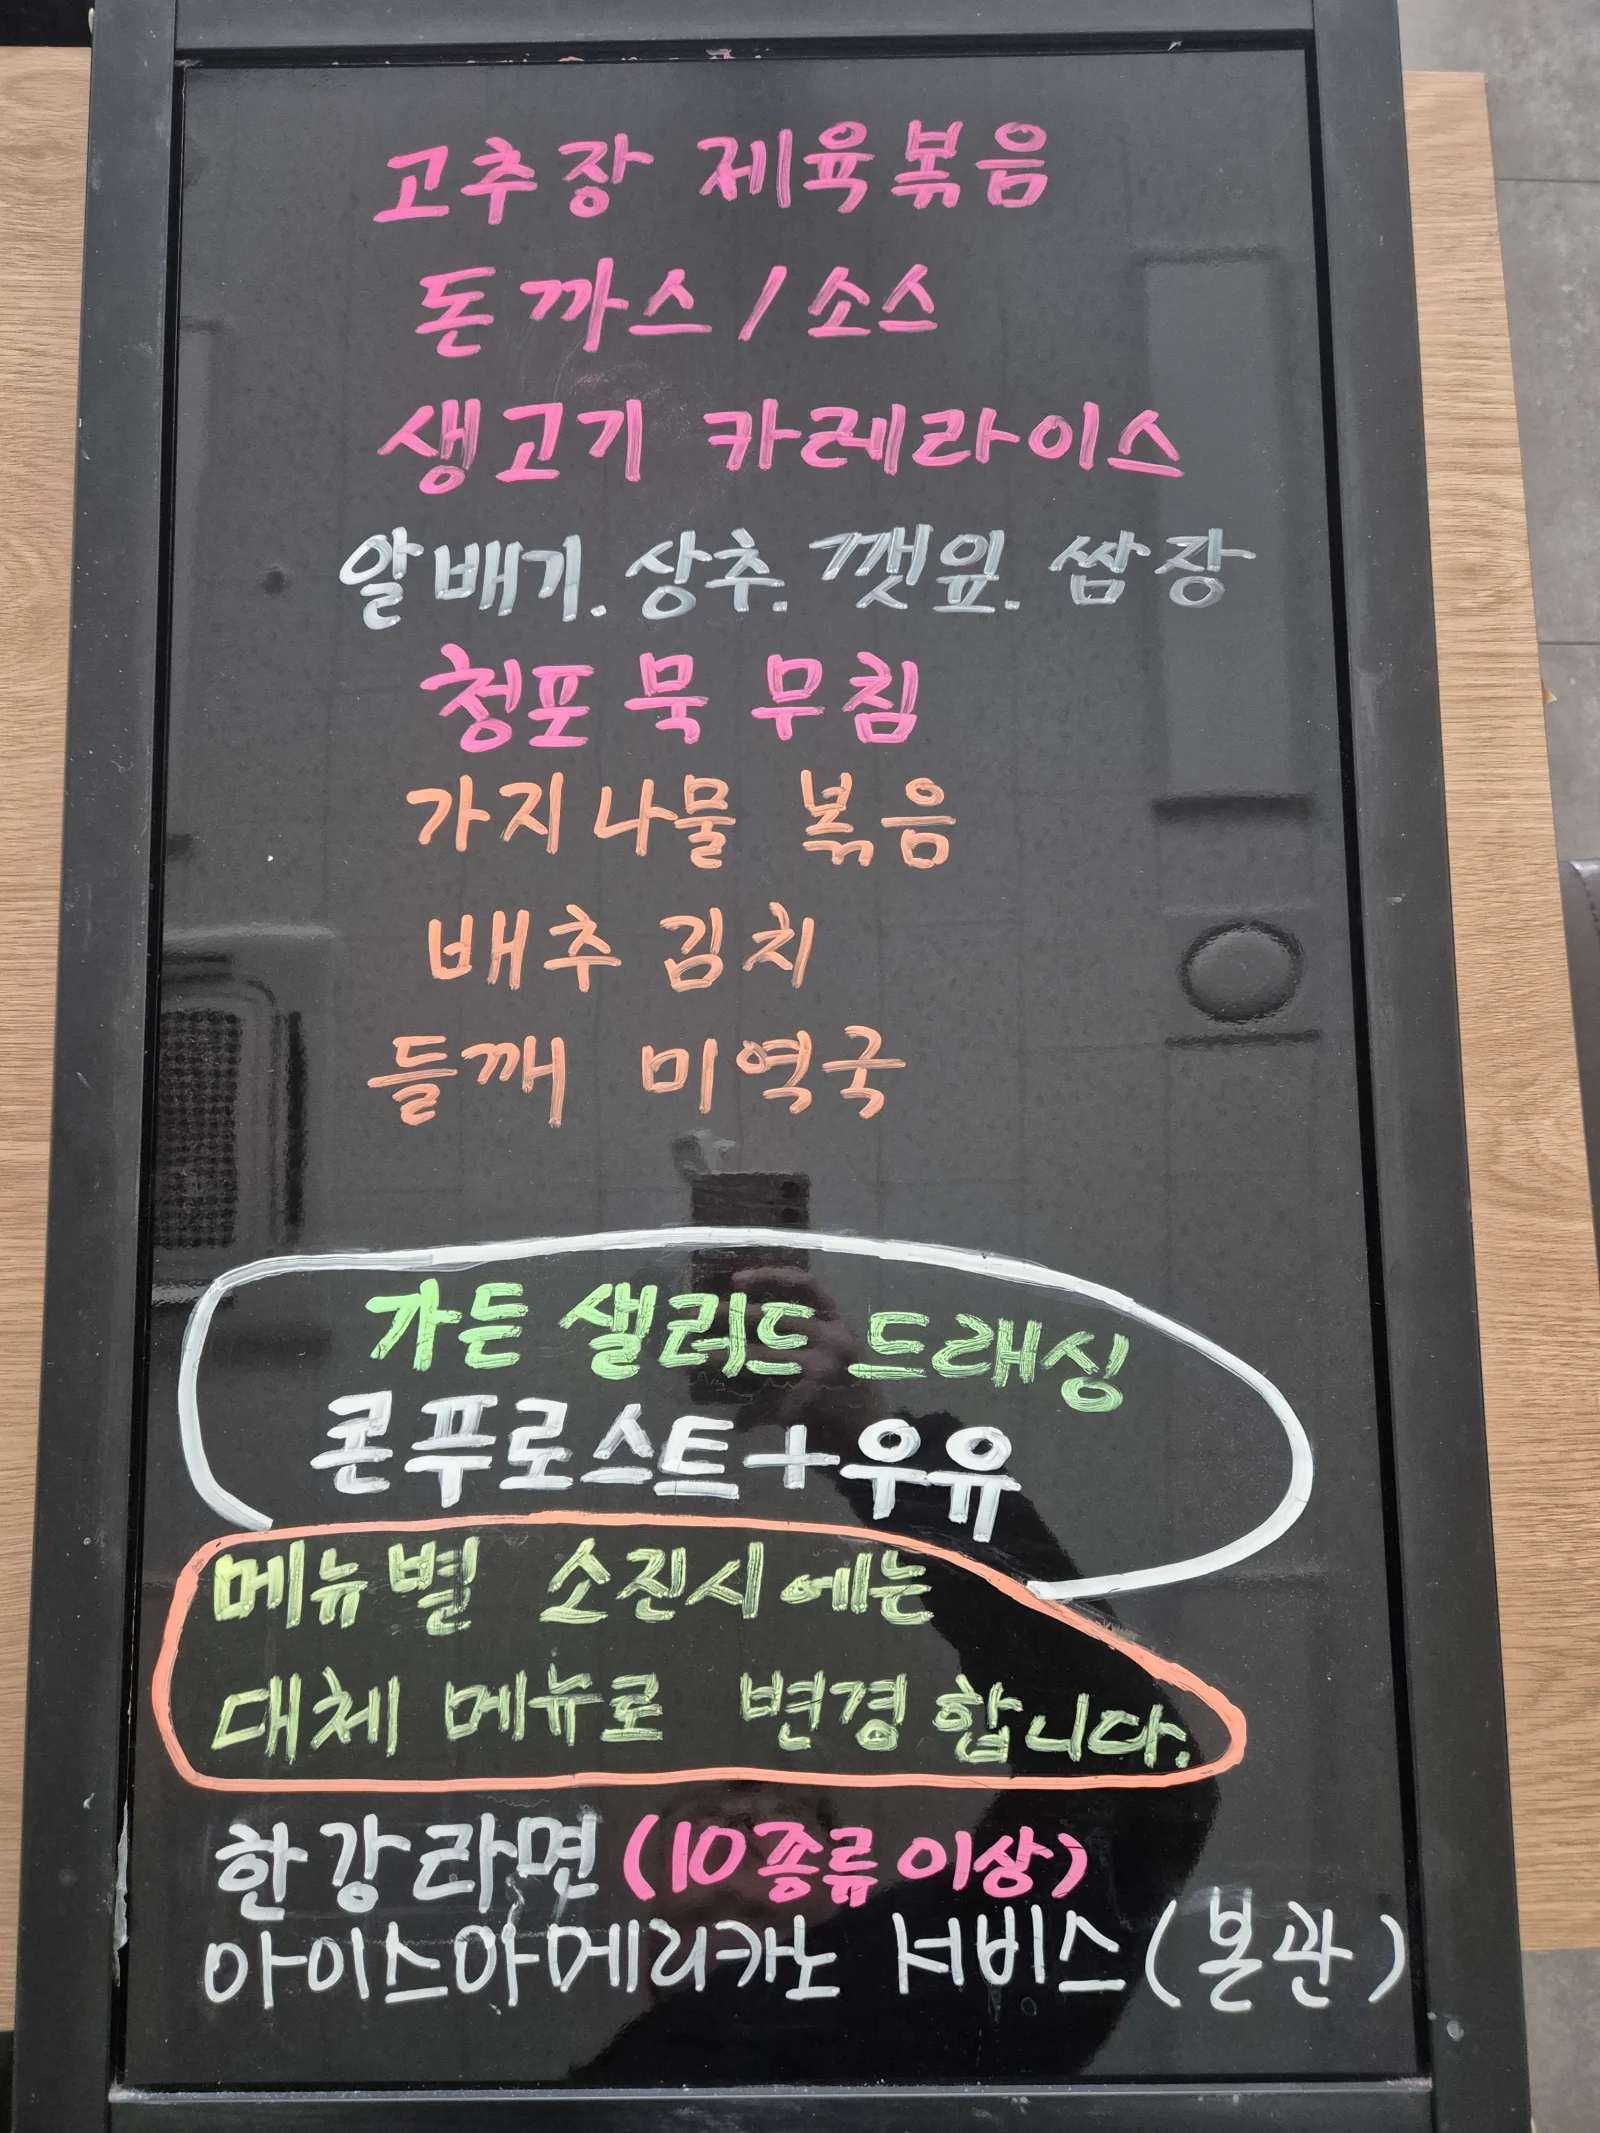 고추장 제육볶음
돈까스/소스
생고기 카레라이스
알배기. 상추. 깻잎. 쌈장
청포묵 무침
가지나물 볶음
배추 김치
들깨 미역국
가든 샐러드 드래싱
콘푸로스트+우유
메뉴별 소진시에는
대체 메뉴로 변경합니다.
한강라면(10종류이상)
아이스아메리카노 서비스(본관)